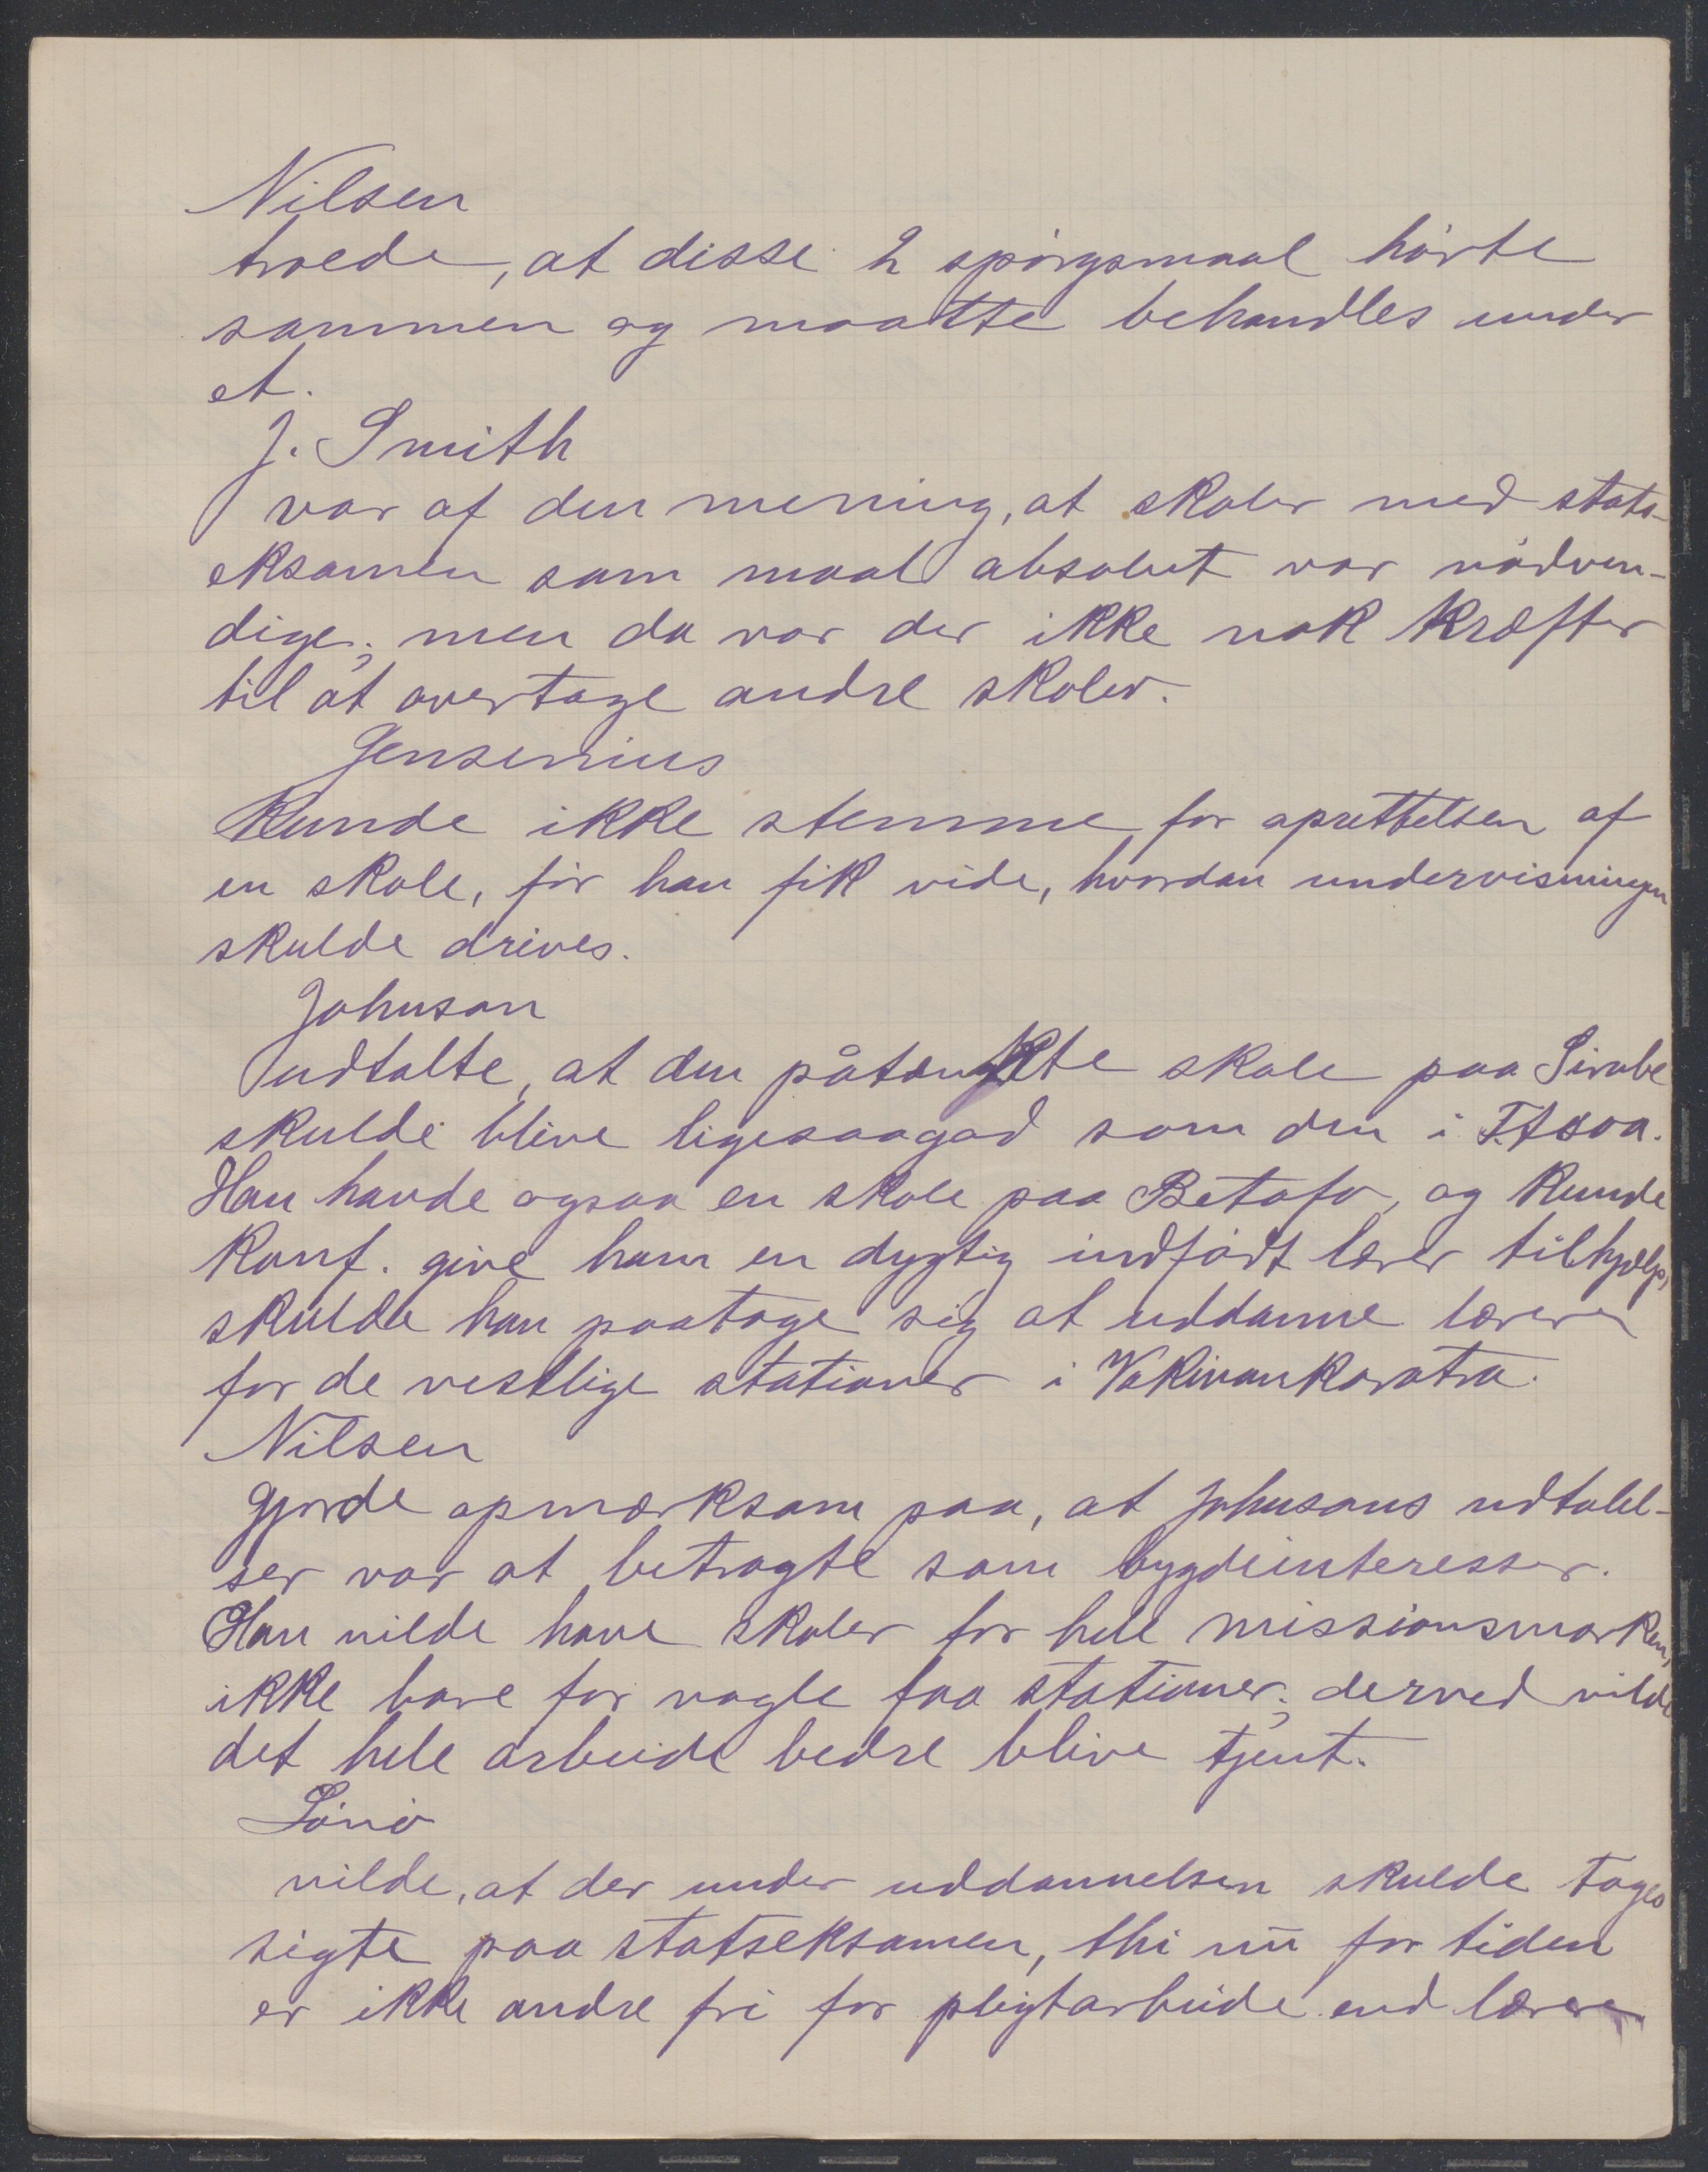 Nilsen
troede, at disse 2 spörgsmaal hörte
sammen og maatte behandles under
et.
J. Smith
var af den mening, at skoler med stats-
eksamen som maal absolut var nödven-
dige; men da var der ikke nok kræfter
til at overtage andre skoler.
Jensenius
kunde ikke stemme for oprettelsen af
en skole, för han fik vide, hvordan undervisningen
skulde drives.
Johnson
udtalte, at den påtænkte skole paa Sirabe
skulde blive ligesaagod som den i F.tsoa.
Han havde ogsaa en skole paa Betafo, og kunde
konf. give ham en dygtig indfödt lærer tilhjælp,
skulde han paatage sig at uddanne lærere
for de vestlige stationer i Vakinankaratra.
Nilsen
gjorde opmærksom paa, at Johnsons udtalel-
ser var at betragte som bygdeinteresser.
Han vilde have skoler for hele missionsmarken,
ikke bare for nogle faa stationer; derved vilde
det hele arbeide bedre blive tjent.
Lönö
vilde, at der under uddannelsen skulde tages
sigte paa statseksamen, thi nu for tiden
er ikke andre fri for pligtarbeide end lærere